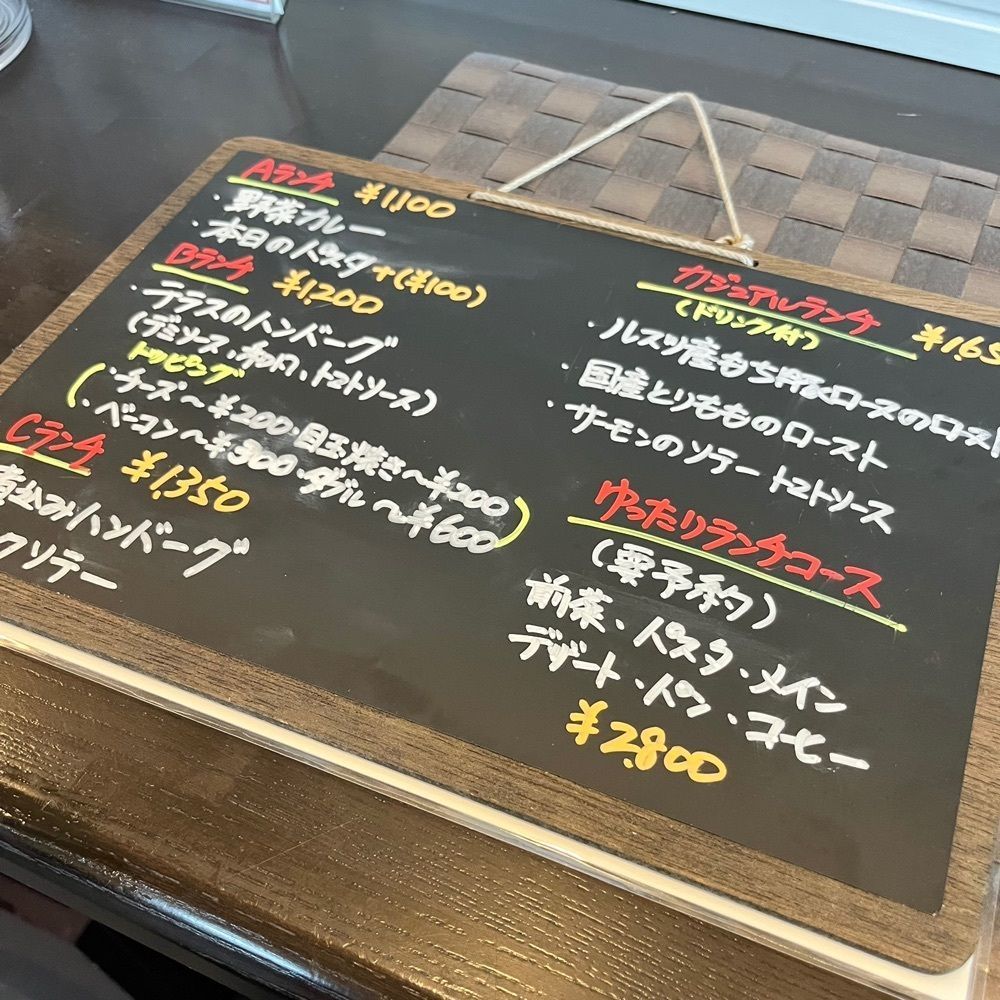 Aランチ ¥1,100
・野菜カレー
・本日のパスタ+(¥100)
Bランチ ¥1,200
・テラスのハンバーグ
(デミソース・和フウ、トマトソース)
トッピング
・チーズ〜¥200・目玉焼き〜¥200
・ベーコン〜¥300・ダブル〜¥600
Cランチ ¥1,350
煮込みハンバーグ
クソテー
カジュアルランチ ¥1,65
(ドリンク付)
・ルスツ産もち豚ロースのロースト
・国産とりもものロースト
・サーモンのソテー トマトソース
ゆったりランチコース
(要予約)
前菜・パスタ・メイン
デザート・パン・コーヒー
¥2,800